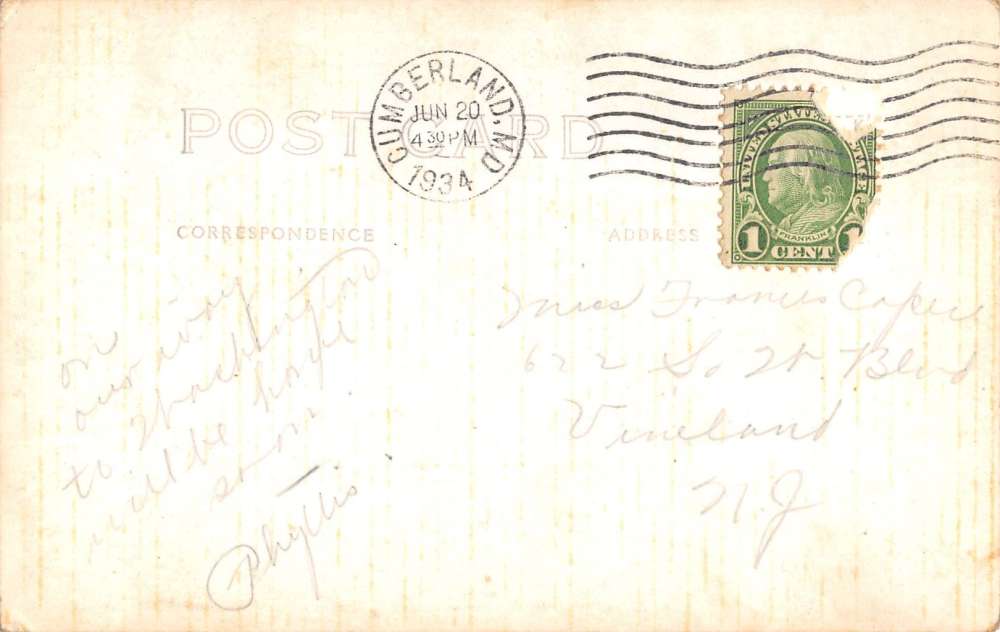 POST CARD
CUMBERLAND, MD
JUN 20
4 30 PM
1934
1 CENT 1
FRANKLIN
CORRESPONDENCE
ADDRESS
on
our way
to Washington
will be home
soon
Phyllis
Miss Frances
622 So W Blvd
Vineland
N.J